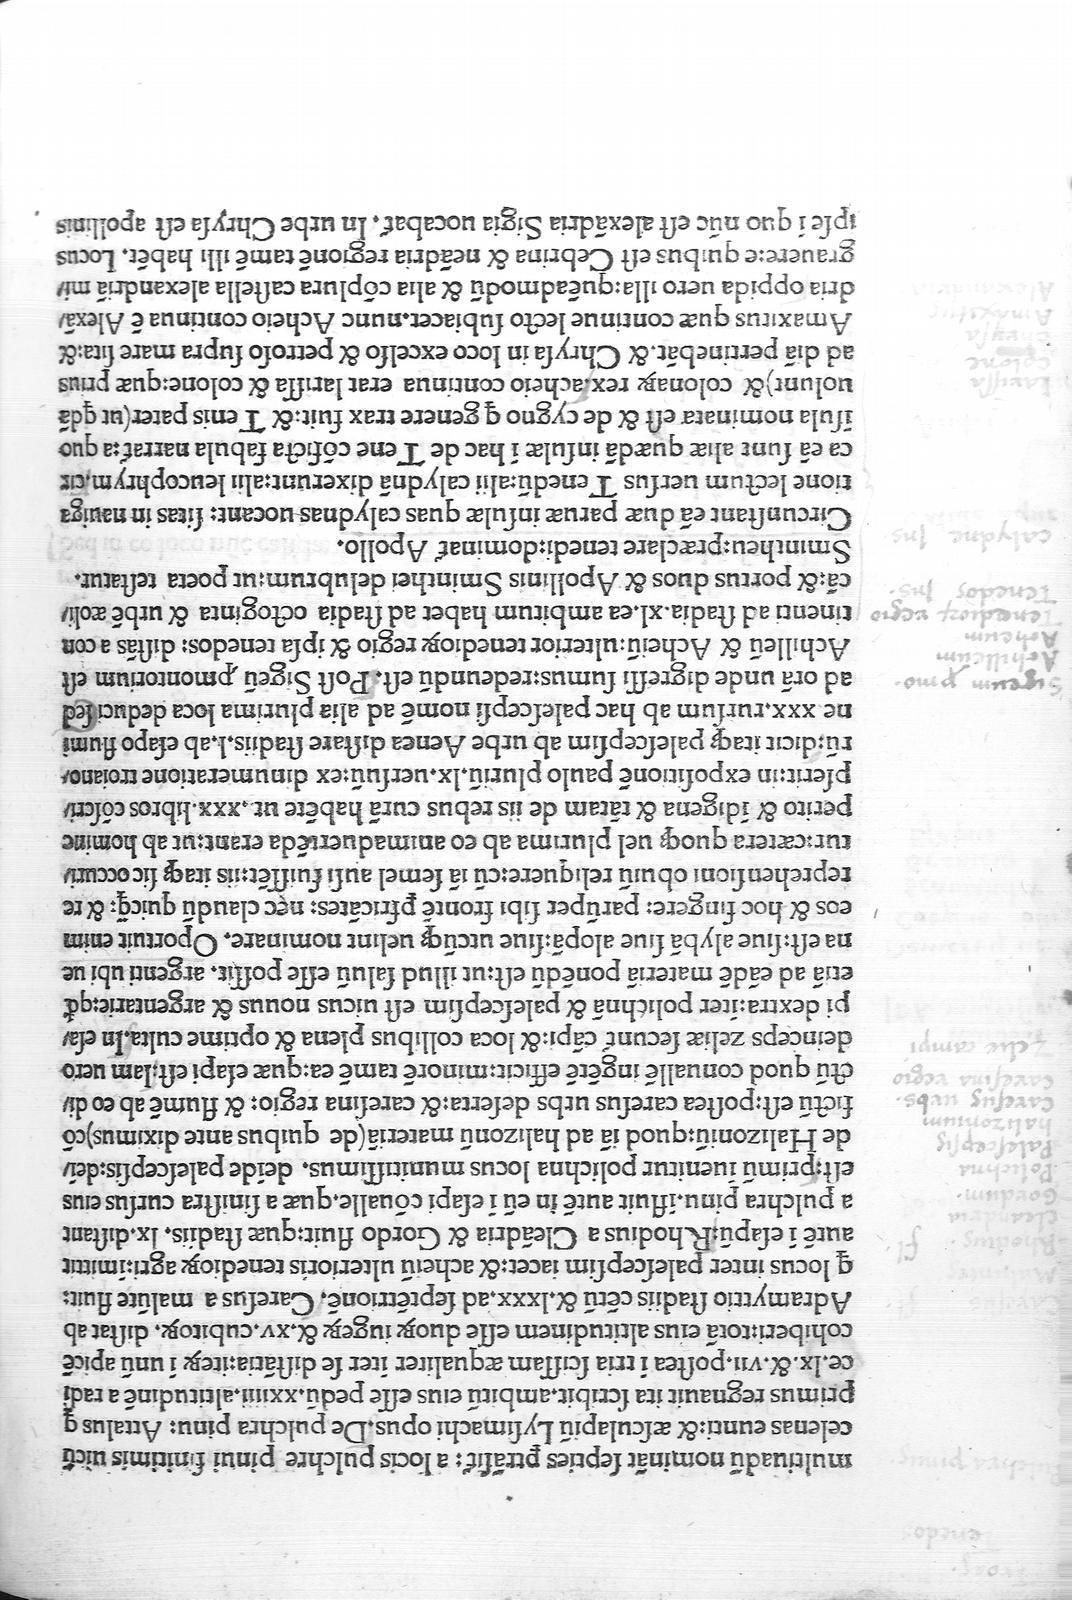 multiuadū nominãt septies ptrāsit̃: a locis pulchre pinui finitimis uictū
celenas eunti:& æsculapiū Lysimachi opus. De pulchra pinu: Attalus q
primus regnauit ita scribit. ambitū eius esse pedū. xxiiii. altitudinē a radi
ce. lx. & .vii. postea ī tria scissam æqualiter iter se distātia: iteꝝ ī unū apicē
cohiberi: totā eius altitudinem esse duoꝝ iugeꝝ &. xv. cubitoꝝ. distat ab
Adramyttio stadiis cētū &. lxxx. ad septētrionē. Caresus a malūte fluit:
q locus inter palescepsim iacet: & acheiū ulterioris tenedioꝝ agri: īmittit
autē ī esepū: Rhodius a Cleādria & Gordo fluit: quæ stadiis. lx. distant
a pulchra pinu. īfluit autē in eū ī esepi cōualle. quæ a sinistra cursus eius
est: primū iuenitur polichna locus munitissimus. deīde palescepsis: dei/
de Halizoniū: quod iā ad halizonū materiā (de quibus ante diximus) cō
fictū est: postea caresus urbs deserta: & caresina regio: & flumē ab eo di/
ctū quod conuallē īgētē efficit: minorē tamē ea: quæ esepi est: Iam uero
deinceps zeliæ secunt̃ cāpi: & loca collibus plena & optime culta. In ese/
pi dextra: iter polichnā & palescepsim est uicus nouus & argentarie: qd
etiā ad eādē materiā ponēdū est: ut illud saluū esse possit. argenti ubi ue
na est: siue alybā siue alopā: siue utcūqꝫ uelint nominare. Oportuit enim
eos & hoc fingere: parūper sibi frontē pfricātes: nec claudū quicq̄: & re
reprehensioni obuiū reliquere: cū iā semel ausi fuissēt: iis itaqꝫ sic occurri/
tur: cætera quoqꝫ uel plurima ab eo animaduertēda erant: ut ab homine
perito & īdigena & tātam de iis rebus curā habēte ut. xxx. libros cōscri/
pserit: in expositionē paulo pluriū. lx. uersuū: ex dinumeratione troiano/
rū: dicit itaqꝫ palescepsim ab urbe Aenea distare stadiis. l. ab esepo flumi
ne xxx. rursum ab hac palescepsi nomē ad alia plurima loca deduci sed
ad orā unde digressi sumus: redeundū est. Post Sigeū pmontorium est
Achilleū & Acheiū: ulterior tenedioꝝ regio & ipsa tenedos: distās a con
tinenti ad stadia. xl. ea ambitum habet ad stadia octoginta & urbē æoli/
cā: & portus duos & Apollinis Sminthei delubrum: ut poeta testatur.
Smintheu: præclare tenedi: dominat̃ Apollo.
Circunstant eā duæ paruæ insulæ quas calydnas uocant: sitas in nauiga
tione lectum uersus Tenedū: alii calydnā dixerunt: alii leucophrym, cir
ca eā sunt aliæ quædā insulæ ī hac de Tene cōficta fabula narrat̃: a quo
īsula nominata est & de cygno q genere trax fuit: & Tenis pater (ut qdā
uolunt) & colonaꝝ rex. acheio continua erat larissa & colone: quæ prius
ad diā pertinebāt. & Chrysa in loco excelso & petroso supra mare sita: &
Amaxitus quæ continue lecto subiacet. nunc Acheio continua ē Alexā/
dria oppida uero illa: quēadmodū & alia cōplura castella alexandriā mi/
grauere: e quibus est Cebrina & neādria regionē tamē illi habēt. Locus
ipse ī quo nūc est alexādria Sigia uocabat̃. In urbe Chrysa est apollinis
Pulchra pinus
Rhodius fl
Cleandria
Gordum.
Polichna
Palescepsis
halizonium
Caresus urbs.
Caresina regio
Zelie campi
Sigeum pmo.
Achilleum
Acheum
Tenedioꝝ regio
Tenedos Ins.
Calydne Ins.
Larissa
Colone
Chrysa
Amaxitus
Alexandria